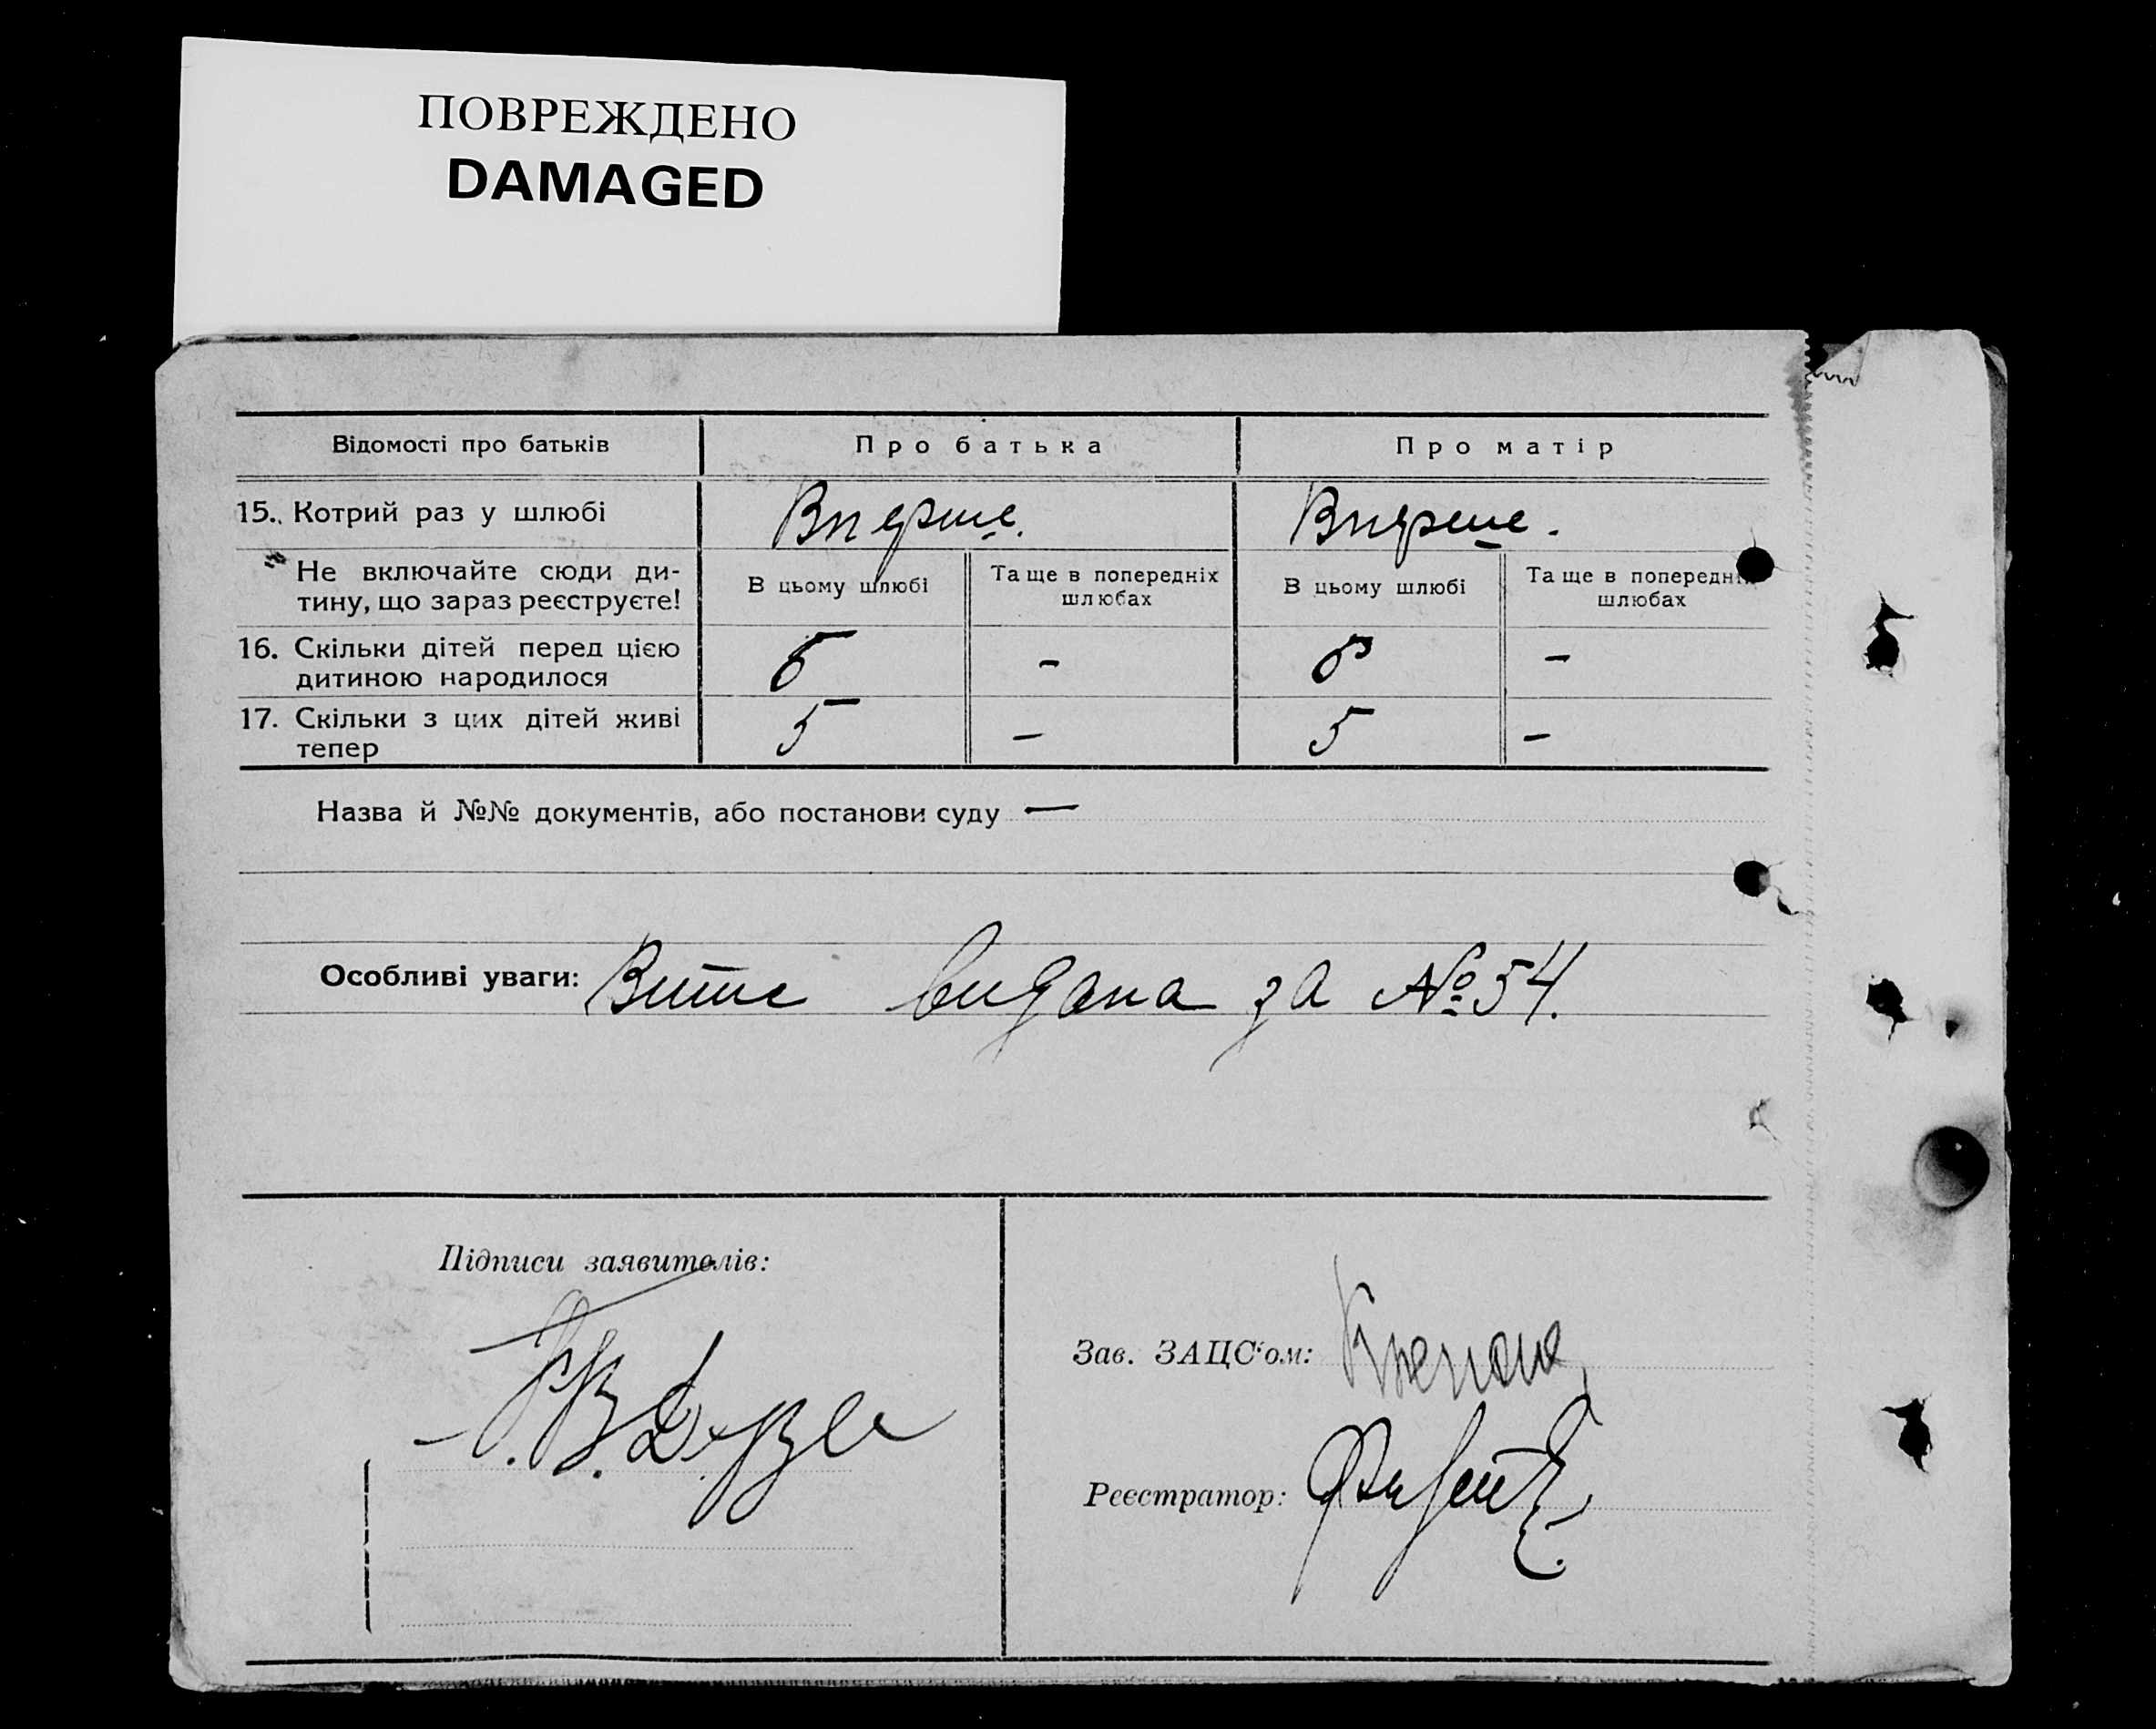 ПОВРЕЖДЕНО
DAMAGED
Відомості про батьків
Про батька
Про матір
15. Котрий раз у шлюбі
Вперше.
Вперше.
Не включайте сюди ди-
тину, що зараз реєструєте!
В цьому шлюбі
Та ще в попередніх
шлюбах
В цьому шлюбі
Та ще в попередніх
шлюбах
16. Скільки дітей перед цією
дитиною народилося
-
-
17. Скільки з цих дітей живі
тепер
5
-
5
-
Назва й №№ документів, або постанови суду —
Особливі уваги: видана за № 54.
Підписи заявителів:
Зав. ЗАЦС'ом:
Реєстратор: